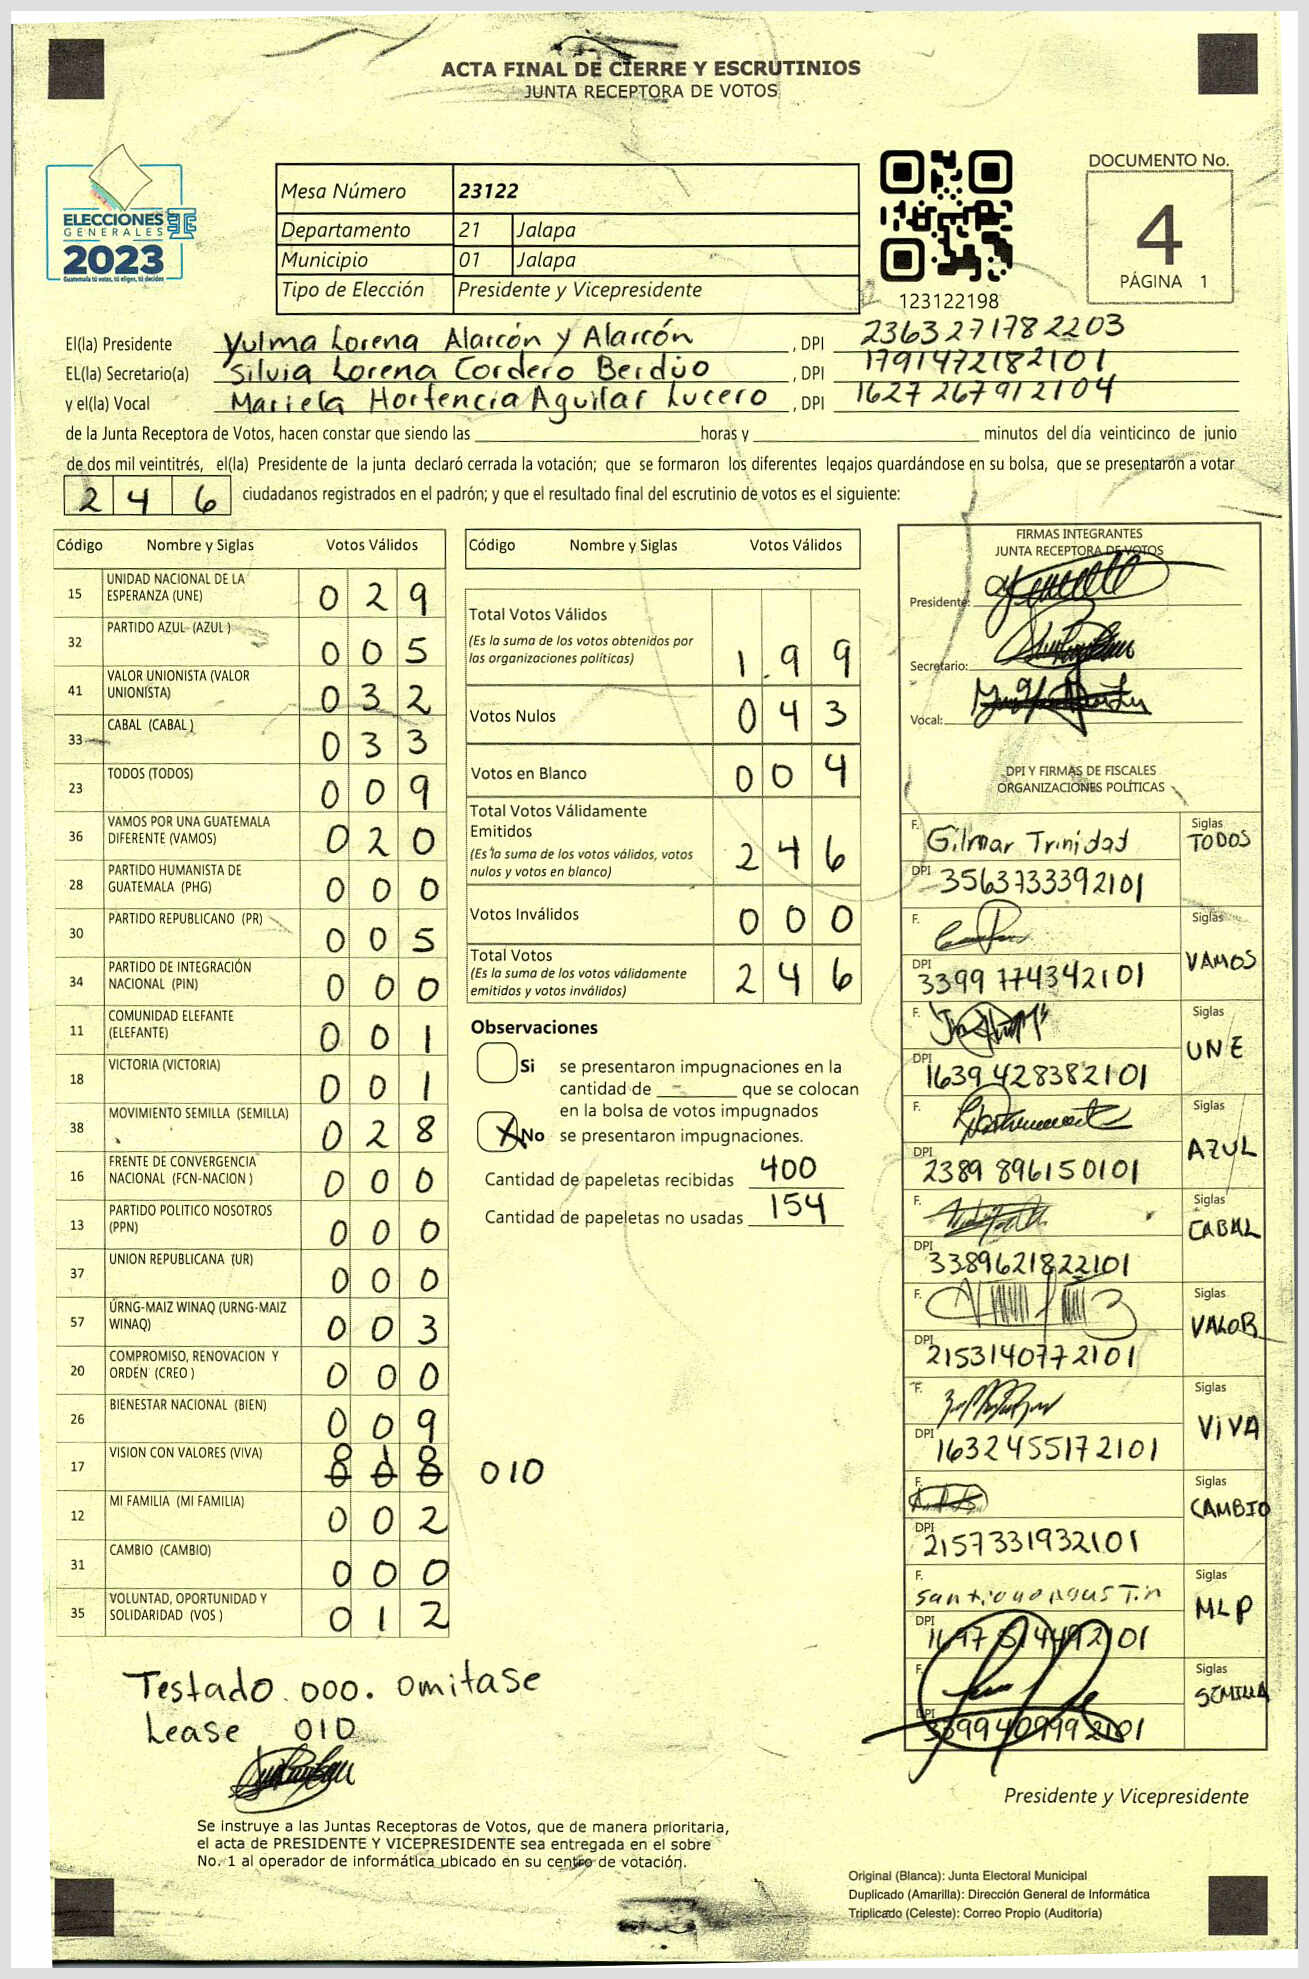 ACTA FINAL DE CIERRE Y ESCRUTINIOS
JUNTA RECEPTORA DE VOTOS
ELECCIONES
GENERALES
2023
Guatemala tú votas, tú eliges, tú decides
TSE
Mesa Número 23122
Departamento 21 Jalapa
Municipio 01 Jalapa
Tipo de Elección Presidente y Vicepresidente
123122198
DOCUMENTO No.
4
PÁGINA 1
El(la) Presidente Yulma Lorena Alarcón y Alarcón , DPI 2363271782203
EL(la) Secretario(a) Silvia Lorena Cordero Berdúo , DPI 1791472182101
y el(la) Vocal Mariela Hortencia Aguilar Lucero , DPI 1627267912104
de la Junta Receptora de Votos, hacen constar que siendo las horas y minutos del día veinticinco de junio
de dos mil veintitrés, el(la) Presidente de la junta declaró cerrada la votación; que se formaron los diferentes legajos guardándose en su bolsa, que se presentaron a votar
246 ciudadanos registrados en el padrón; y que el resultado final del escrutinio de votos es el siguiente:
Código Nombre y Siglas Votos Válidos
15 UNIDAD NACIONAL DE LA ESPERANZA (UNE) 029
32 PARTIDO AZUL (AZUL ) 005
41 VALOR UNIONISTA (VALOR UNIONISTA) 032
33 CABAL (CABAL ) 033
23 TODOS (TODOS) 009
36 VAMOS POR UNA GUATEMALA DIFERENTE (VAMOS) 020
28 PARTIDO HUMANISTA DE GUATEMALA (PHG) 000
30 PARTIDO REPUBLICANO (PR) 005
34 PARTIDO DE INTEGRACIÓN NACIONAL (PIN) 000
11 COMUNIDAD ELEFANTE (ELEFANTE) 001
18 VICTORIA (VICTORIA) 001
38 MOVIMIENTO SEMILLA (SEMILLA) 028
16 FRENTE DE CONVERGENCIA NACIONAL (FCN-NACION ) 000
13 PARTIDO POLITICO NOSOTROS (PPN) 000
37 UNION REPUBLICANA (UR) 000
57 URNG-MAIZ WINAQ (URNG-MAIZ WINAQ) 003
20 COMPROMISO, RENOVACION Y ORDEN (CREO ) 000
26 BIENESTAR NACIONAL (BIEN) 009
17 VISION CON VALORES (VIVA) 010
12 MI FAMILIA (MI FAMILIA) 002
31 CAMBIO (CAMBIO) 000
35 VOLUNTAD, OPORTUNIDAD Y SOLIDARIDAD (VOS ) 012
Testado 000. omitase
Lease 010
Código Nombre y Siglas Votos Válidos
Total Votos Válidos
(Es la suma de los votos obtenidos por
las organizaciones políticas) 199
Votos Nulos 043
Votos en Blanco 004
Total Votos Válidamente
Emitidos
(Es la suma de los votos válidos, votos
nulos y votos en blanco) 246
Votos Inválidos 000
Total Votos
(Es la suma de los votos válidamente
emitidos y votos inválidos) 246
Observaciones
Si se presentaron impugnaciones en la
cantidad de - que se colocan
en la bolsa de votos impugnados
X No se presentaron impugnaciones.
Cantidad de papeletas recibidas 400
Cantidad de papeletas no usadas 154
FIRMAS INTEGRANTES
JUNTA RECEPTORA DE VOTOS
Presidente:
Secretario:
Vocal:
DPI Y FIRMAS DE FISCALES
ORGANIZACIONES POLÍTICAS
F. Gilmar Trinidad Siglas TODOS
DPI 3563733392101
F. Siglas VAMOS
DPI 3399774342101
F. Siglas UNE
DPI 1639428382101
F. Siglas AZUL
DPI 2389896150101
F. Siglas CABAL
DPI 3389621822101
F. Siglas VALOR
DPI 2153140772101
F. Siglas VIVA
DPI 1632455172101
F. Siglas CAMBIO
DPI 2157331932101
F. Siglas MLP
DPI
F. Siglas SEMILLA
DPI 3399409992101
Presidente y Vicepresidente
Se instruye a las Juntas Receptoras de Votos, que de manera prioritaria,
el acta de PRESIDENTE Y VICEPRESIDENTE sea entregada en el sobre
No. 1 al operador de informática ubicado en su centro de votación.
Original (Blanca): Junta Electoral Municipal
Duplicado (Amarilla): Dirección General de Informática
Triplicado (Celeste): Correo Propio (Auditoría)